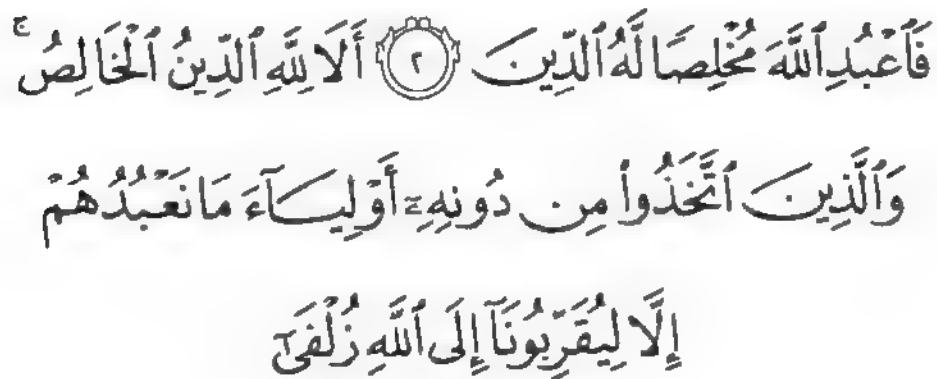 فَٱعْبُدِ ٱللَّهَ مُخْلِصًا لَّهُ ٱلدِّينَ ٢ أَلَا لِلَّهِ ٱلدِّينُ ٱلْخَالِصُ ۚ
وَٱلَّذِينَ ٱتَّخَذُوا۟ مِن دُونِهِۦٓ أَوْلِيَآءَ مَا نَعْبُدُهُمْ
إِلَّا لِيُقَرِّبُونَآ إِلَى ٱللَّهِ زُلْفَىٰٓ